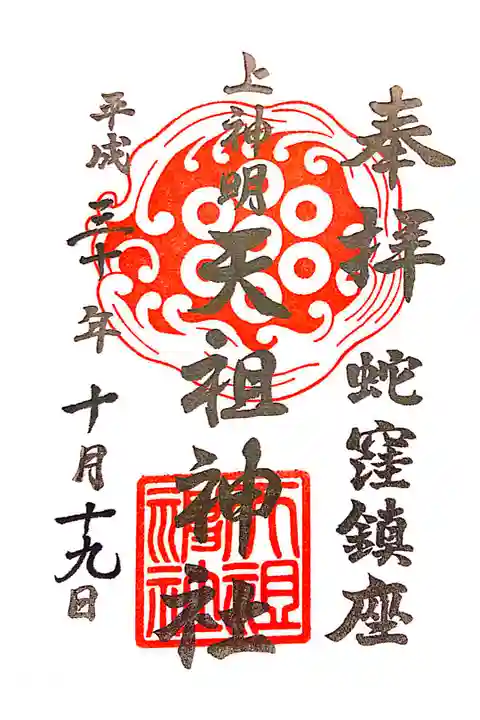 奉拝
蛇窪鎮座
上神明
天祖神社
平成三十年十月十九日
天祖神社